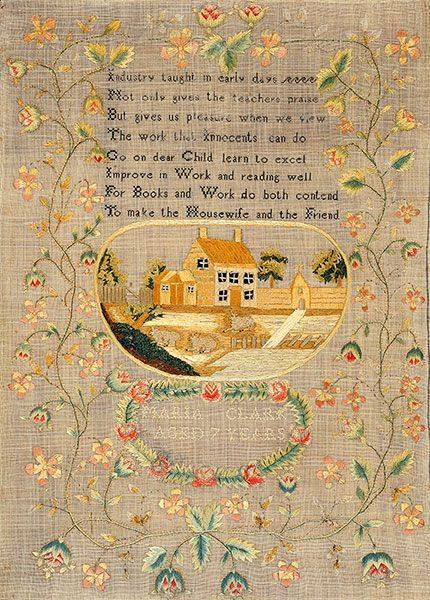 Industry taught in early days
Not only gives the teachers praise
But gives us pleasure when we view
The work that Innocents can do
Go on dear Child learn to excel
Improve in Work and reading well
For Books and Work do both contend
To make the Housewife and the Friend
MARIA CLARK
AGED 7 YEARS